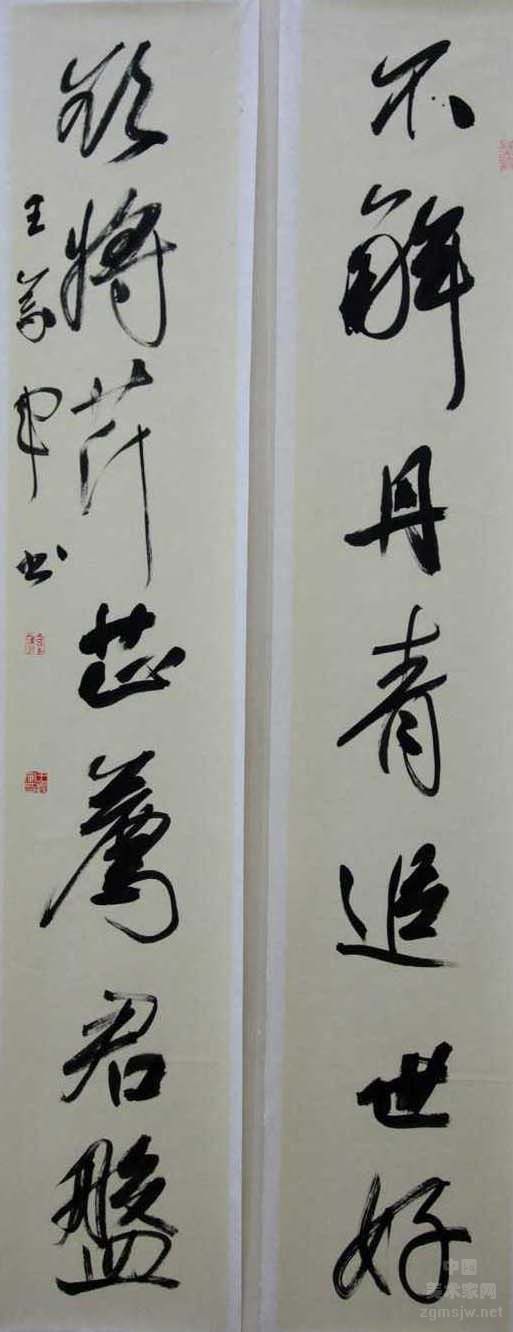 不解丹青追世好
欲將芹芷薦君盤
王萬軍书
中国
美术家网
zgmsjw.net